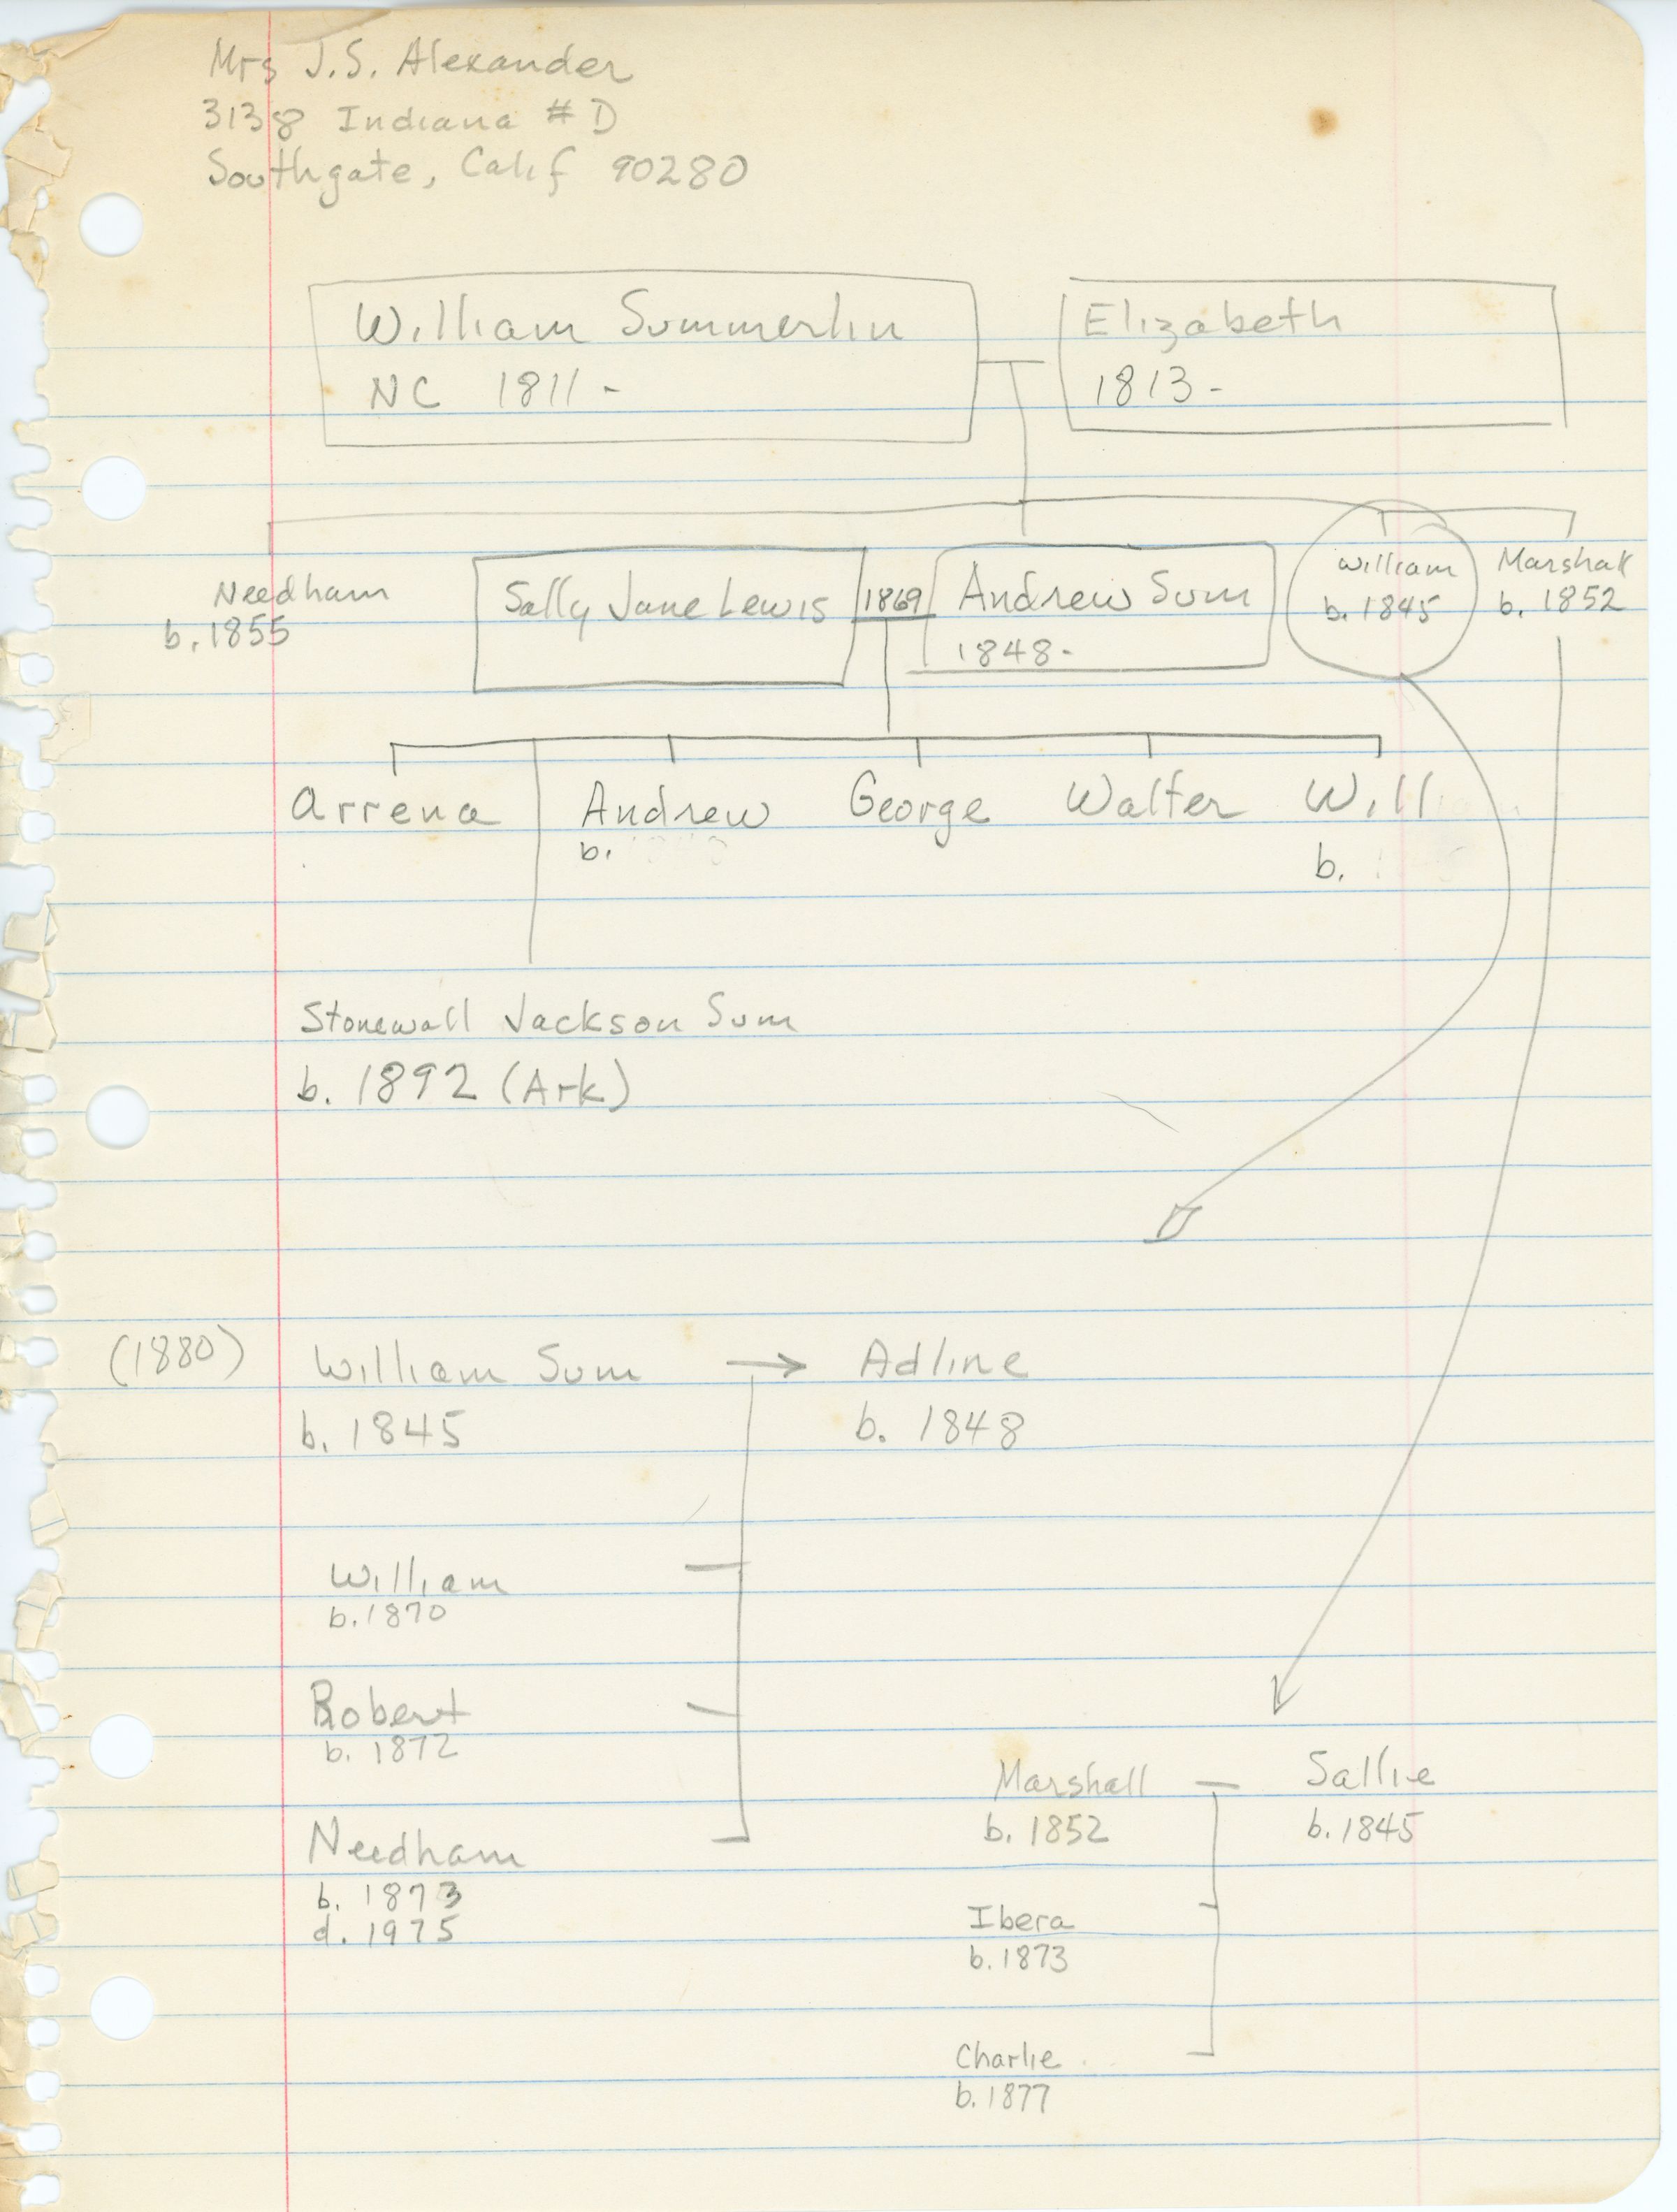 Mrs J.S. Alexander
3138 Indiana # D
Southgate, Calif 90280
William Summerlin
NC 1811 -
Elizabeth
1813 -
Needham
b. 1855
Sally Jane Lewis
1869
Andrew Sum
1848 -
William
b. 1845
Marshall
b. 1852
Arrena
Andrew
b.
George
Walter
Will
b.
Stonewall Jackson Sum
b. 1892 (Ark)
(1880) William Sum → Adline
b. 1845 b. 1848
William
b. 1870
Robert
b. 1872
Needham
b. 1873
d. 1975
Marshall — Sallie
b. 1852 b. 1845
Ibera
b. 1873
Charlie
b. 1877